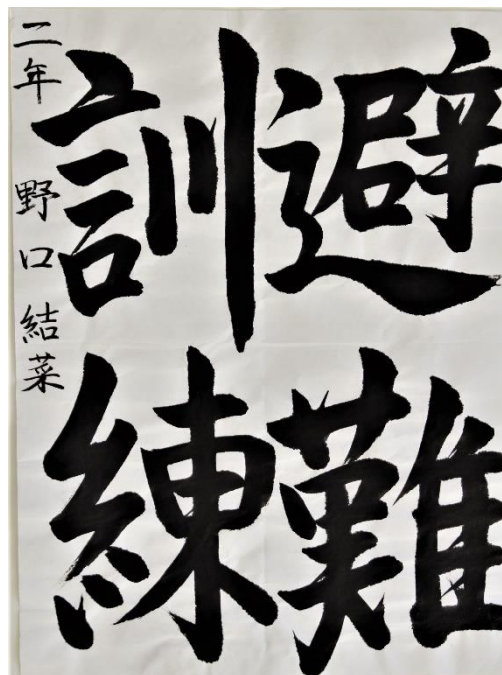 避難
訓練
二年 野口結菜